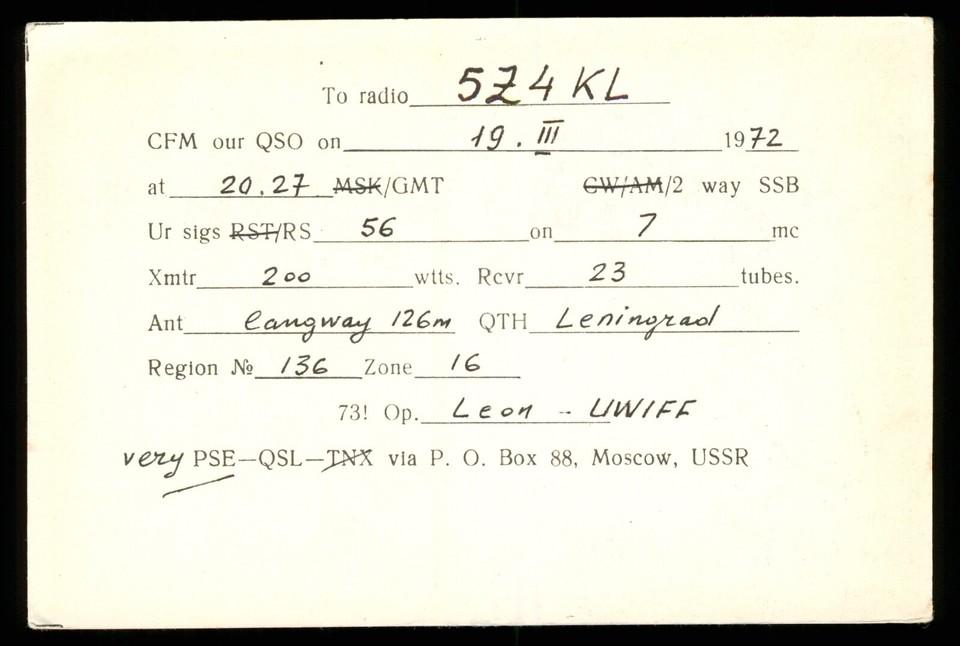 To radio 5Z4KL
CFM our QSO on 19. III 1972
at 20.27 MSK/GMT CW/AM/2 way SSB
Ur sigs RST/RS 56 on 7 mc
Xmtr 200 wtts. Rcvr 23 tubes.
Ant Langway 126m QTH Leningrad
Region № 136 Zone 16
73! Op. Leon - UW1FF
very PSE—QSL—TNX via P. O. Box 88, Moscow, USSR